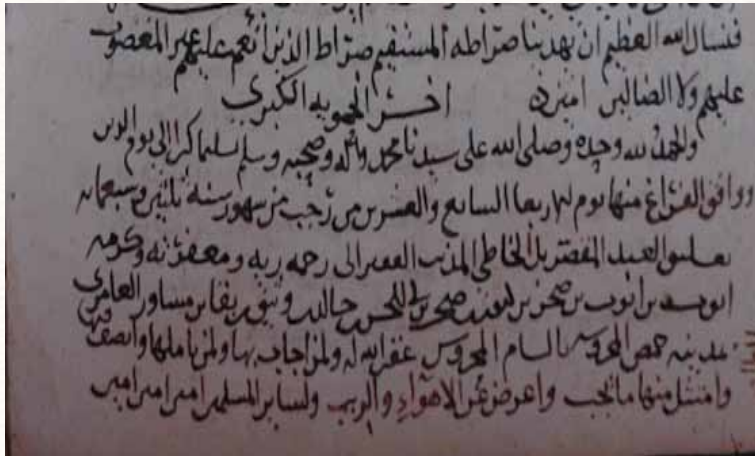 فنسال الله العظيم ان يهدينا صراطه المستقيم صراط الذين انعم عليهم غير المغضوب
عليهم ولا الضالين امين اخر الحمويه الكبرى
والحمد لله وحده وصلى الله على سيدنا محمد واله وصحبه وسلم تسليما كثيرا الى يوم الدين
ووافق الفراغ منها يوم الاربعا السابع والعشرين من رجب من شهور سنة ثلثين وسبعمائه
تعليق العبد المقصر بل الخاطى المذنب الفقير الى رحمه ربه ومغفرته وكرمه
ايوب بن ايوب بن صخر بن بن مساور العامرى
بمدينه حمص المحروسه بالشام المحروس غفر الله له ولمن اجاب بها ولمن تاملها وانصف فيها
وامتثل منها ما يجب واعرض عن الاهواء والريب ولساير المسلمين امين امين امين